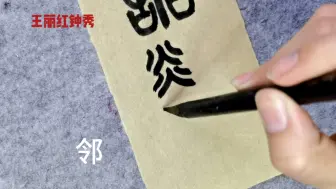 王丽红钟秀
炎
邻